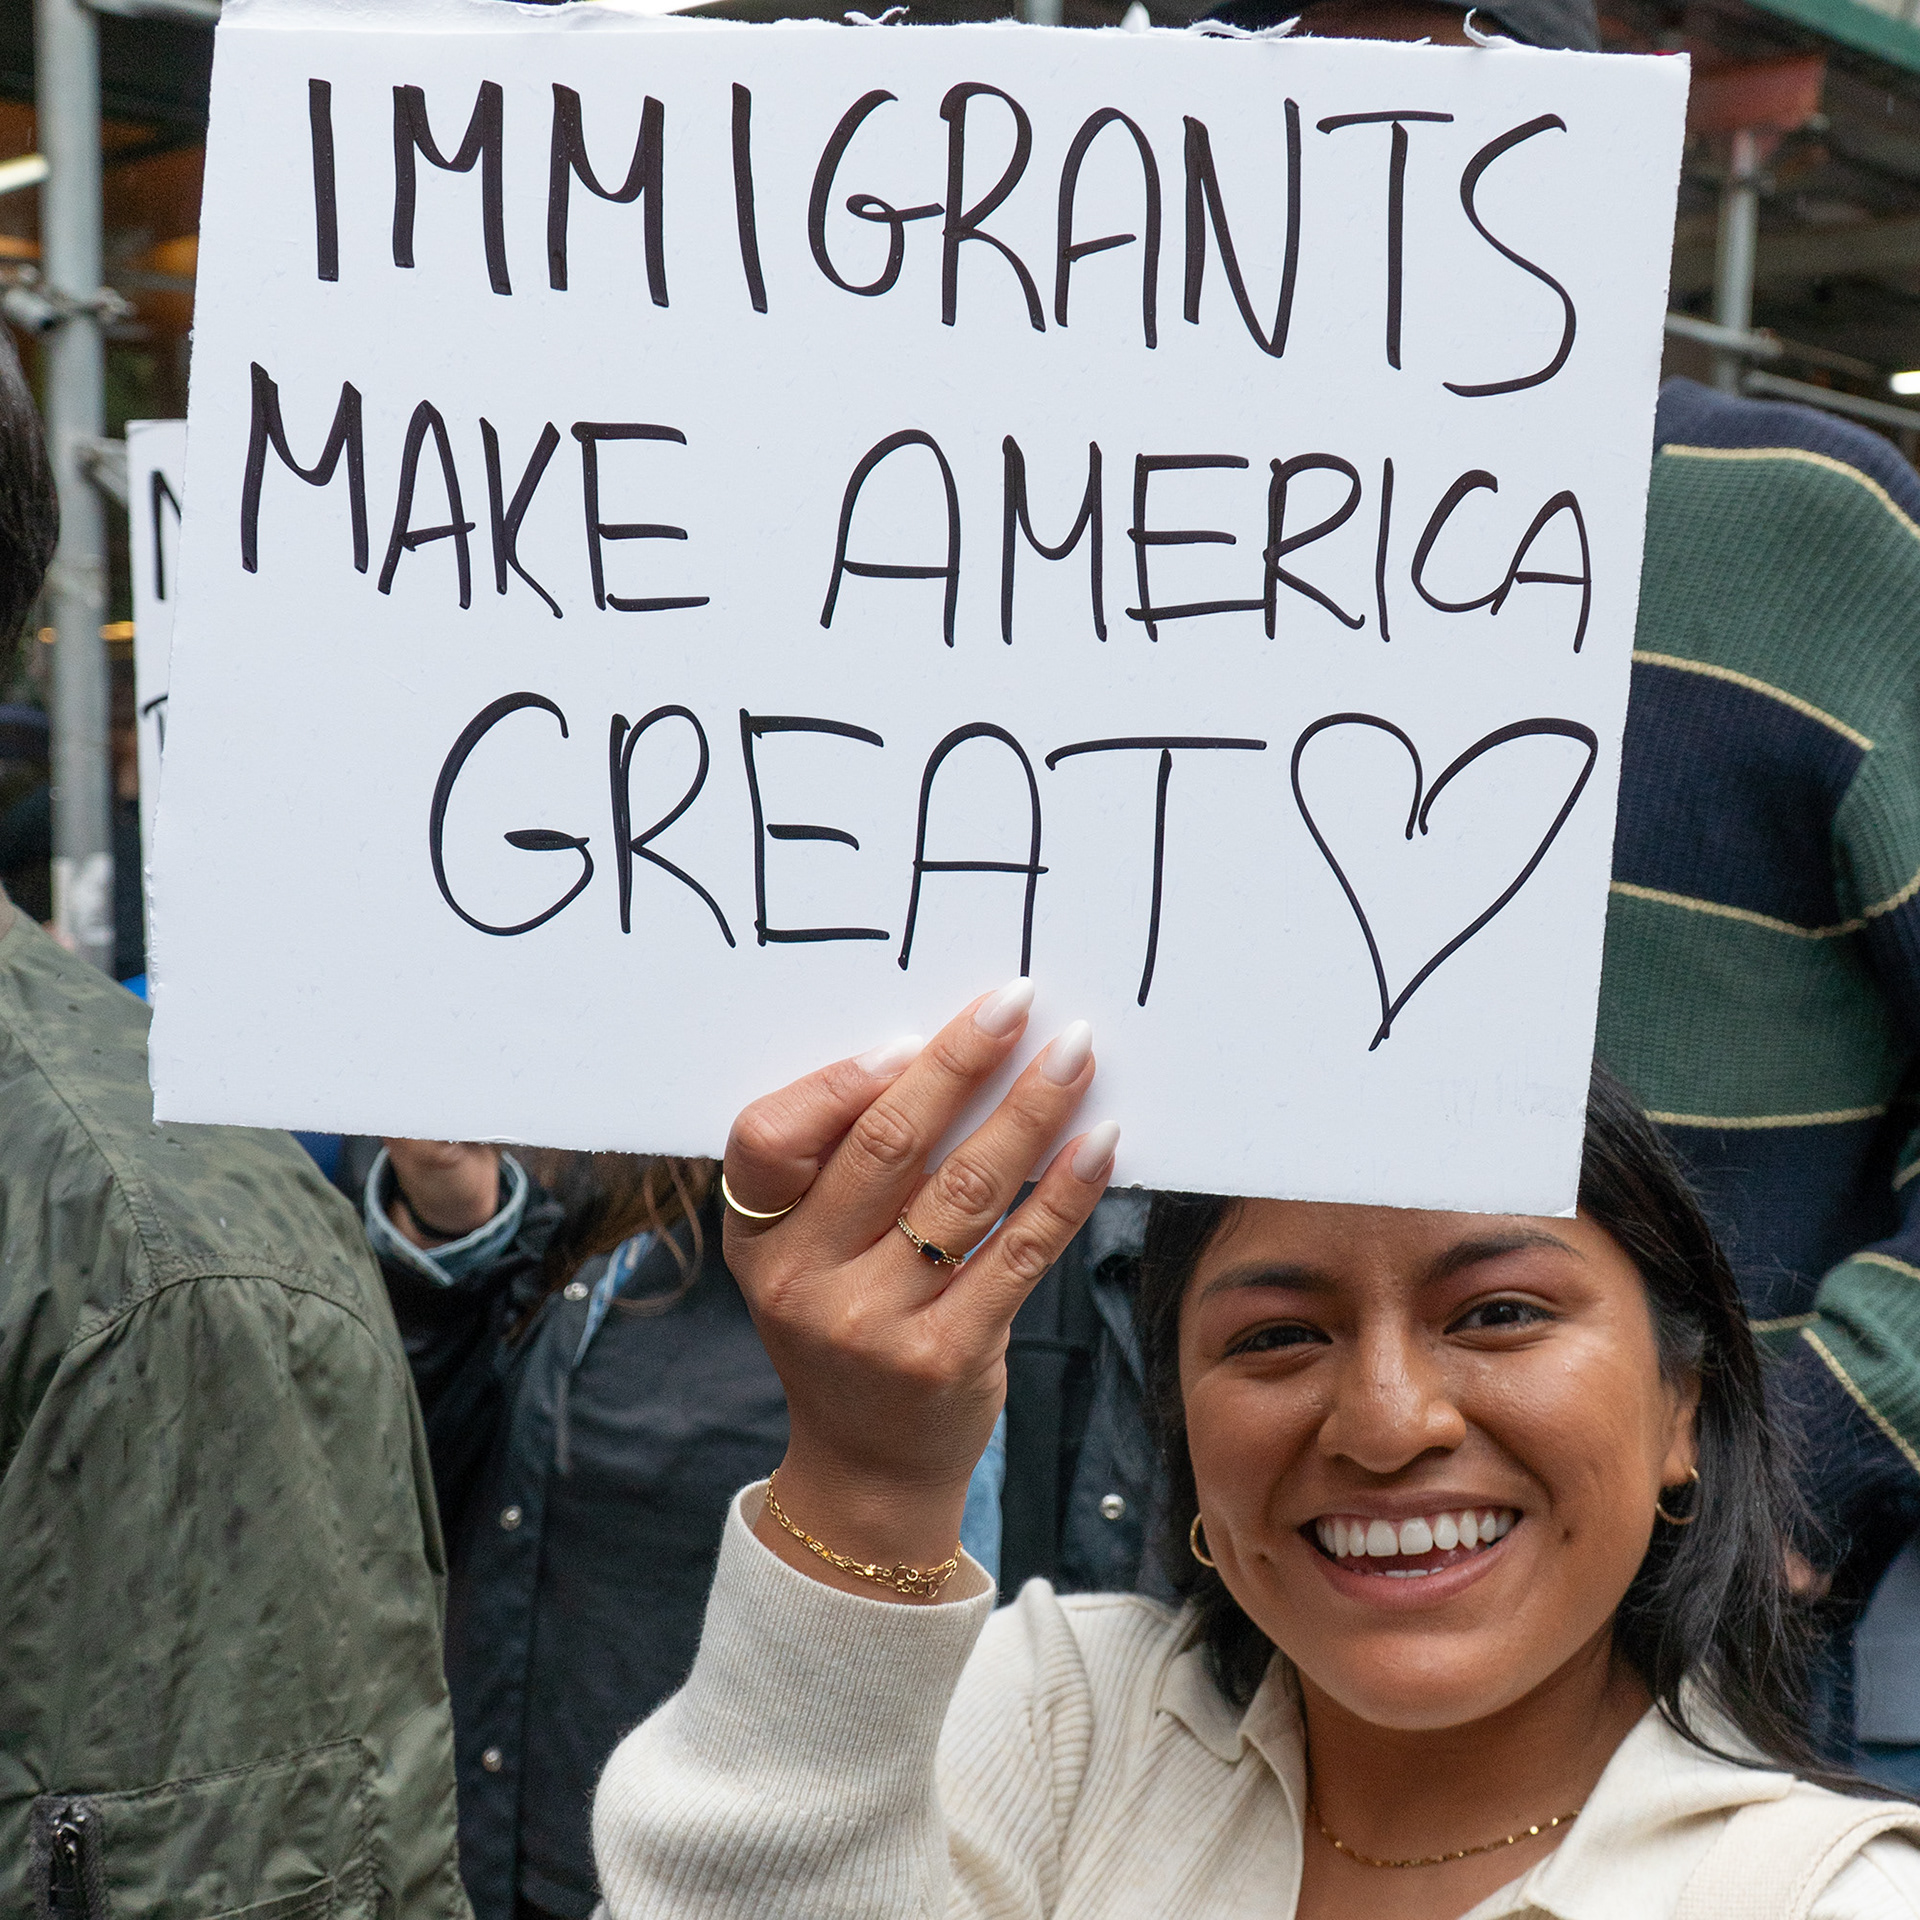 IMMIGRANTS
MAKE AMERICA
GREAT ♡